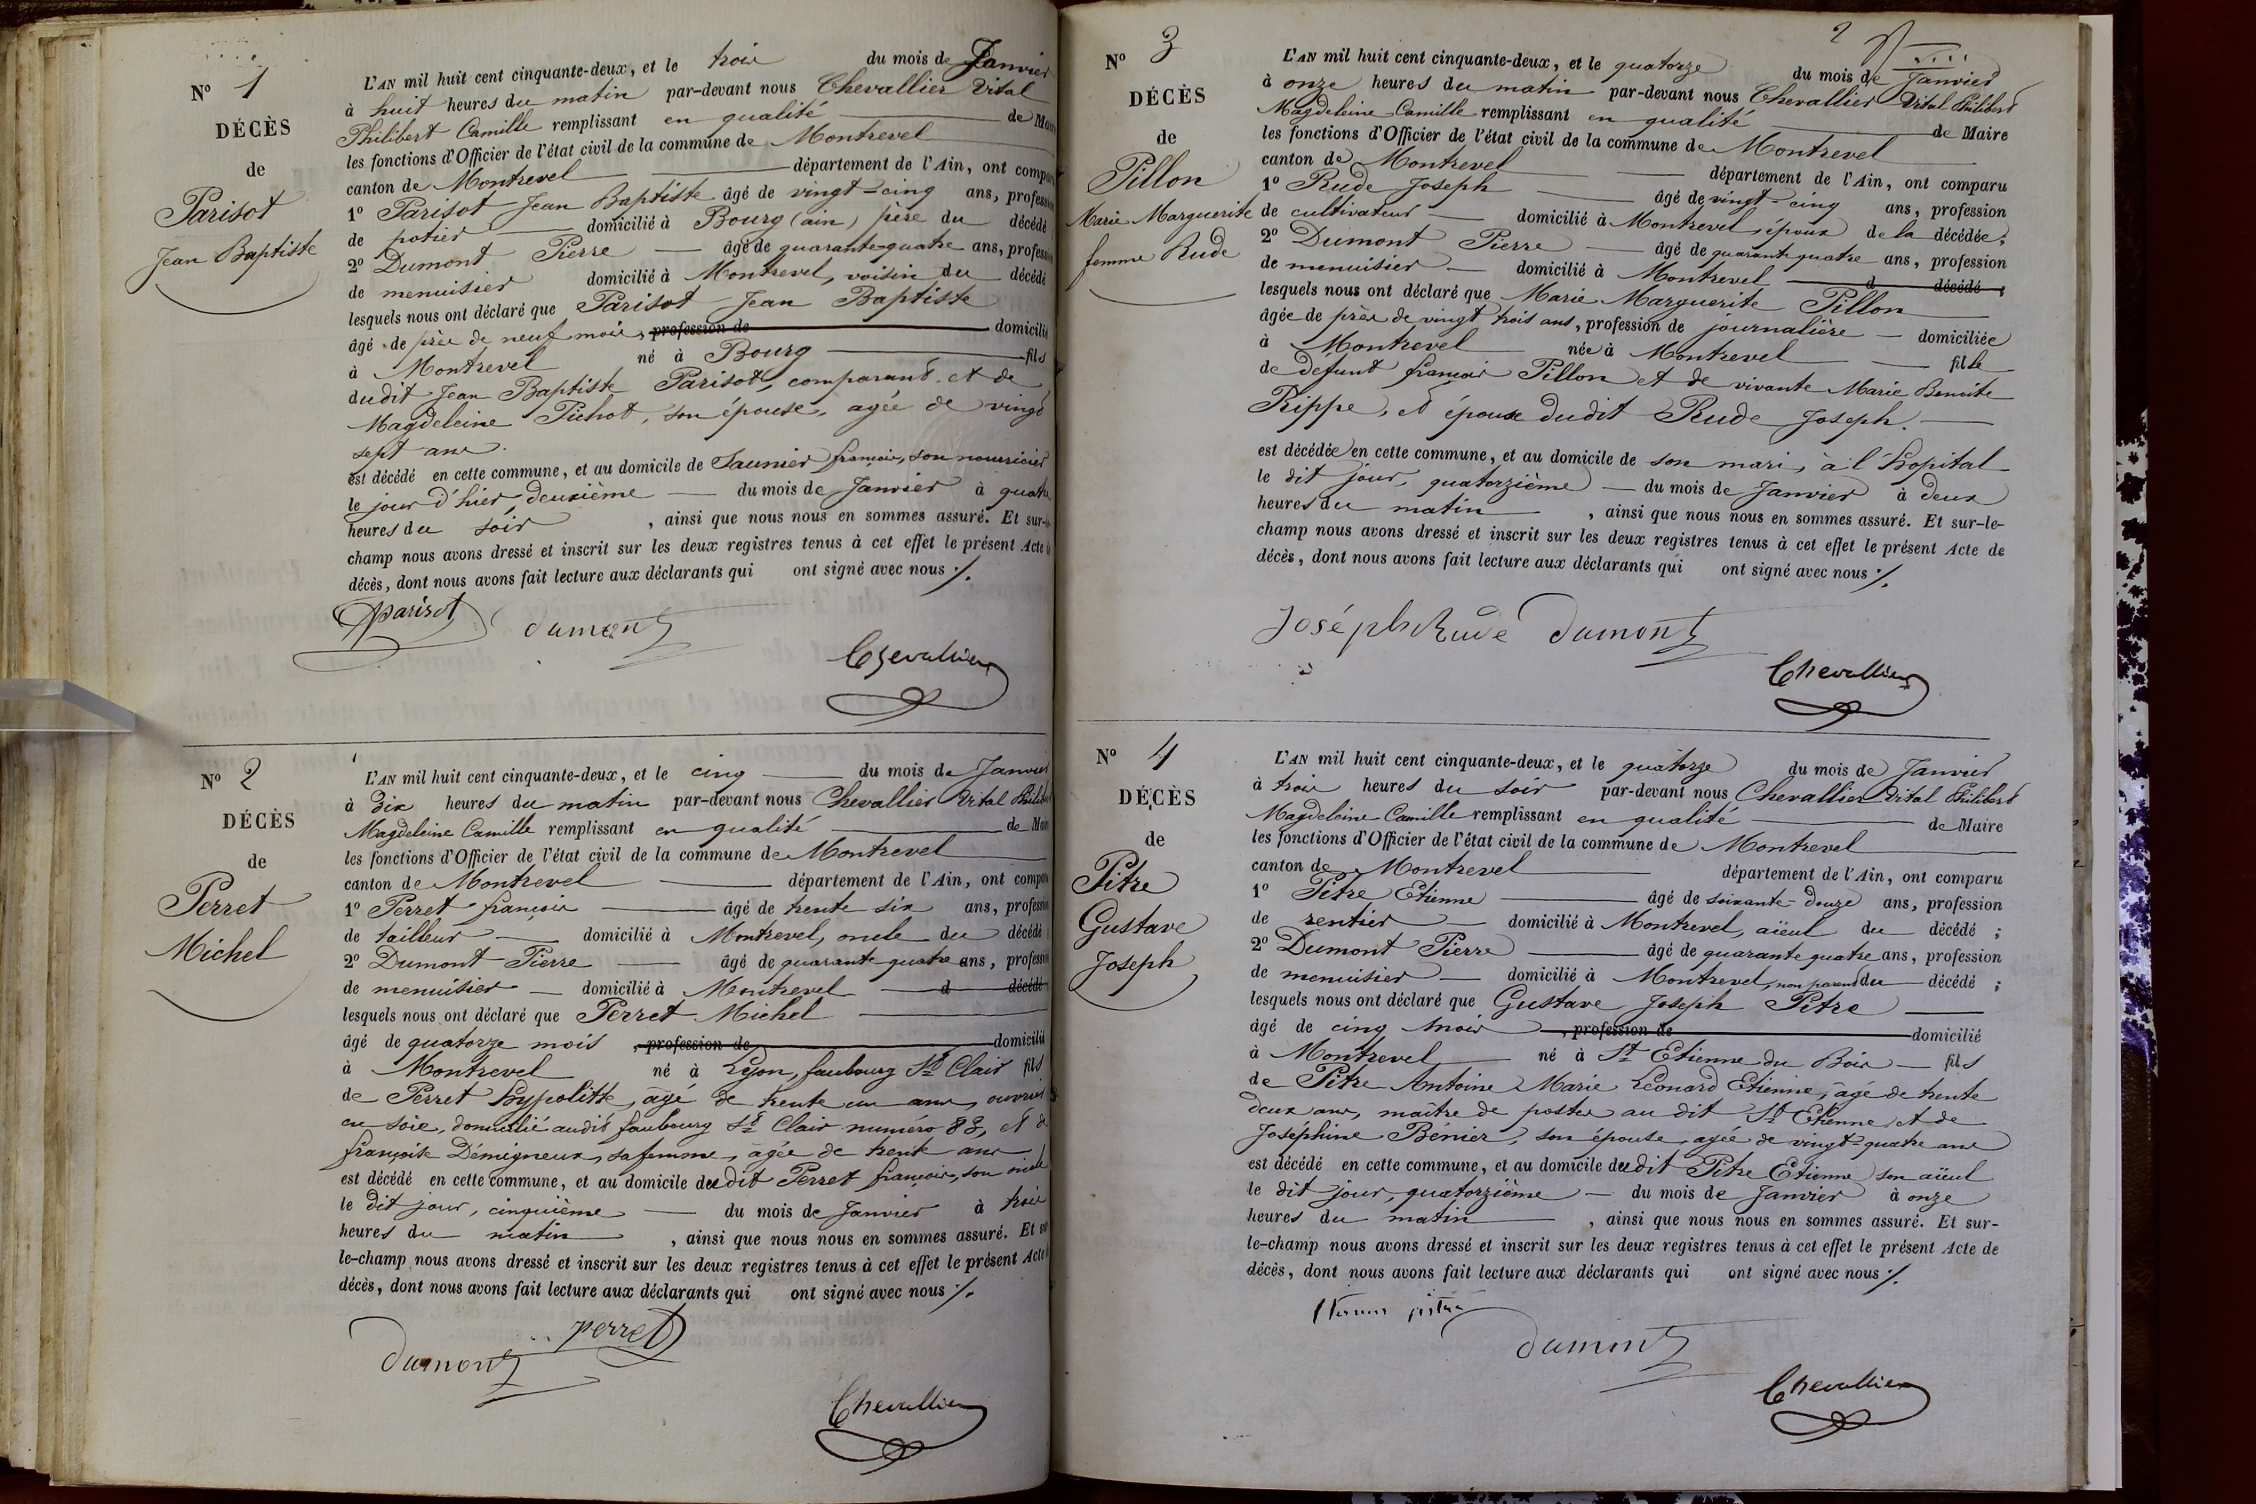 Nº 1
DÉCÈS
de
Parisot
Jean Baptiste
L'AN mil huit cent cinquante-deux, et le trois du mois de Janvier
à huit heures du matin par-devant nous Chevallier Vital
Philibert Camille remplissant en qualité de Maire
les fonctions d'Officier de l'état civil de la commune de Montrevel
canton de Montrevel département de l'Ain, ont comparu
1º Parisot Jean Baptiste âgé de vingt-cinq ans, profession
de potier domicilié à Bourg (ain) père du décédé
2º Dumont Pierre âgé de quarante-quatre ans, profession
de menuisier domicilié à Montrevel, voisin du décédé
lesquels nous ont déclaré que Parisot Jean Baptiste
âgé de près de neuf mois, profession de domicilié
à Montrevel né à Bourg fils
dudit Jean Baptiste Parisot, comparant et de
Magdeleine Pichot, son épouse, agée de vingt
sept ans.
est décédé en cette commune, et au domicile de Saunier françois, son nourricier
le jour d'hier deuxième du mois de Janvier à quatre
heures du soir, ainsi que nous nous en sommes assuré. Et sur-le-
champ nous avons dressé et inscrit sur les deux registres tenus à cet effet le présent Acte de
décès, dont nous avons fait lecture aux déclarants qui ont signé avec nous ./.
Parisot dumont
Chevallier
Nº 2
DÉCÈS
de
Perret
Michel
L'AN mil huit cent cinquante-deux, et le cinq du mois de Janvier
à dix heures du matin par-devant nous Chevallier Vital Philibert
Magdeleine Camille remplissant en qualité de Maire
les fonctions d'Officier de l'état civil de la commune de Montrevel
canton de Montrevel département de l'Ain, ont comparu
1º Perret françois âgé de trente six ans, profession
de tailleur domicilié à Montrevel, oncle du décédé
2º Dumont Pierre âgé de quarante-quatre ans, profession
de menuisier domicilié à Montrevel d décédé
lesquels nous ont déclaré que Perret Michel
âgé de quatorze mois, profession de domicilié
à Montrevel né à Lyon, faubourg St Clair fils
de Perret hypolitte, agé de trente un ans, ouvrier
en soie, domicilié audit faubourg St Clair numéro 83, et de
françoise Démigneux, sa femme, agée de trente ans
est décédé en cette commune, et au domicile dudit Perret françois, son oncle
le dit jour, cinquième du mois de Janvier à trois
heures du matin, ainsi que nous nous en sommes assuré. Et sur-
le-champ nous avons dressé et inscrit sur les deux registres tenus à cet effet le présent Acte de
décès, dont nous avons fait lecture aux déclarants qui ont signé avec nous ./.
perret
dumont
Chevallier
2
Nº 3
DÉCÈS
de
Pillon
Marie Marguerite
femme Rude
L'AN mil huit cent cinquante-deux, et le quatorze du mois de Janvier
à onze heures du matin par-devant nous Chevallier Vital Philibert
Magdeleine Camille remplissant en qualité de Maire
les fonctions d'Officier de l'état civil de la commune de Montrevel
canton de Montrevel département de l'Ain, ont comparu
1º Rude Joseph âgé de vingt-cinq ans, profession
de cultivateur domicilié à Montrevel, époux de la décédée;
2º Dumont Pierre âgé de quarante quatre ans, profession
de menuisier domicilié à Montrevel d décédé;
lesquels nous ont déclaré que Marie Marguerite Pillon
âgée de près de vingt trois ans, profession de journalière domiciliée
à Montrevel née à Montrevel fille
de défunt françois Pillon et de vivante Marie Benoite
Trippe, et épouse dudit Rude Joseph.
est décédée en cette commune, et au domicile de son mari, à l'hopital
le dit jour, quatorzième du mois de Janvier à deux
heures du matin, ainsi que nous nous en sommes assuré. Et sur-le-
champ nous avons dressé et inscrit sur les deux registres tenus à cet effet le présent Acte de
décès, dont nous avons fait lecture aux déclarants qui ont signé avec nous ./.
Joséph Rude dumont
Chevallier
Nº 4
DÉCÈS
de
Pitre
Gustave
Joseph
L'AN mil huit cent cinquante-deux, et le quatorze du mois de Janvier
à trois heures du soir par-devant nous Chevallier Vital Philibert
Magdeleine Camille remplissant en qualité de Maire
les fonctions d'Officier de l'état civil de la commune de Montrevel
canton de Montrevel département de l'Ain, ont comparu
1º Pitre Etienne âgé de soixante-douze ans, profession
de rentier domicilié à Montrevel, aïeul du décédé;
2º Dumont Pierre âgé de quarante quatre ans, profession
de menuisier domicilié à Montrevel, non parent du décédé;
lesquels nous ont déclaré que Gustave Joseph Pitre
âgé de cinq mois, profession de domicilié
à Montrevel né à St Etienne du Bois fils
de Pitre Antoine Marie Léonard Etienne, agé de trente
deux ans, maître de postes au dit St Etienne et de
Joséphine Bénier, son épouse, agée de vingt-quatre ans
est décédé en cette commune, et au domicile dudit Pitre Etienne son aïeul
le dit jour, quatorzième du mois de Janvier à onze
heures du matin, ainsi que nous nous en sommes assuré. Et sur-
le-champ nous avons dressé et inscrit sur les deux registres tenus à cet effet le présent Acte de
décès, dont nous avons fait lecture aux déclarants qui ont signé avec nous ./.
dumont
Chevallier